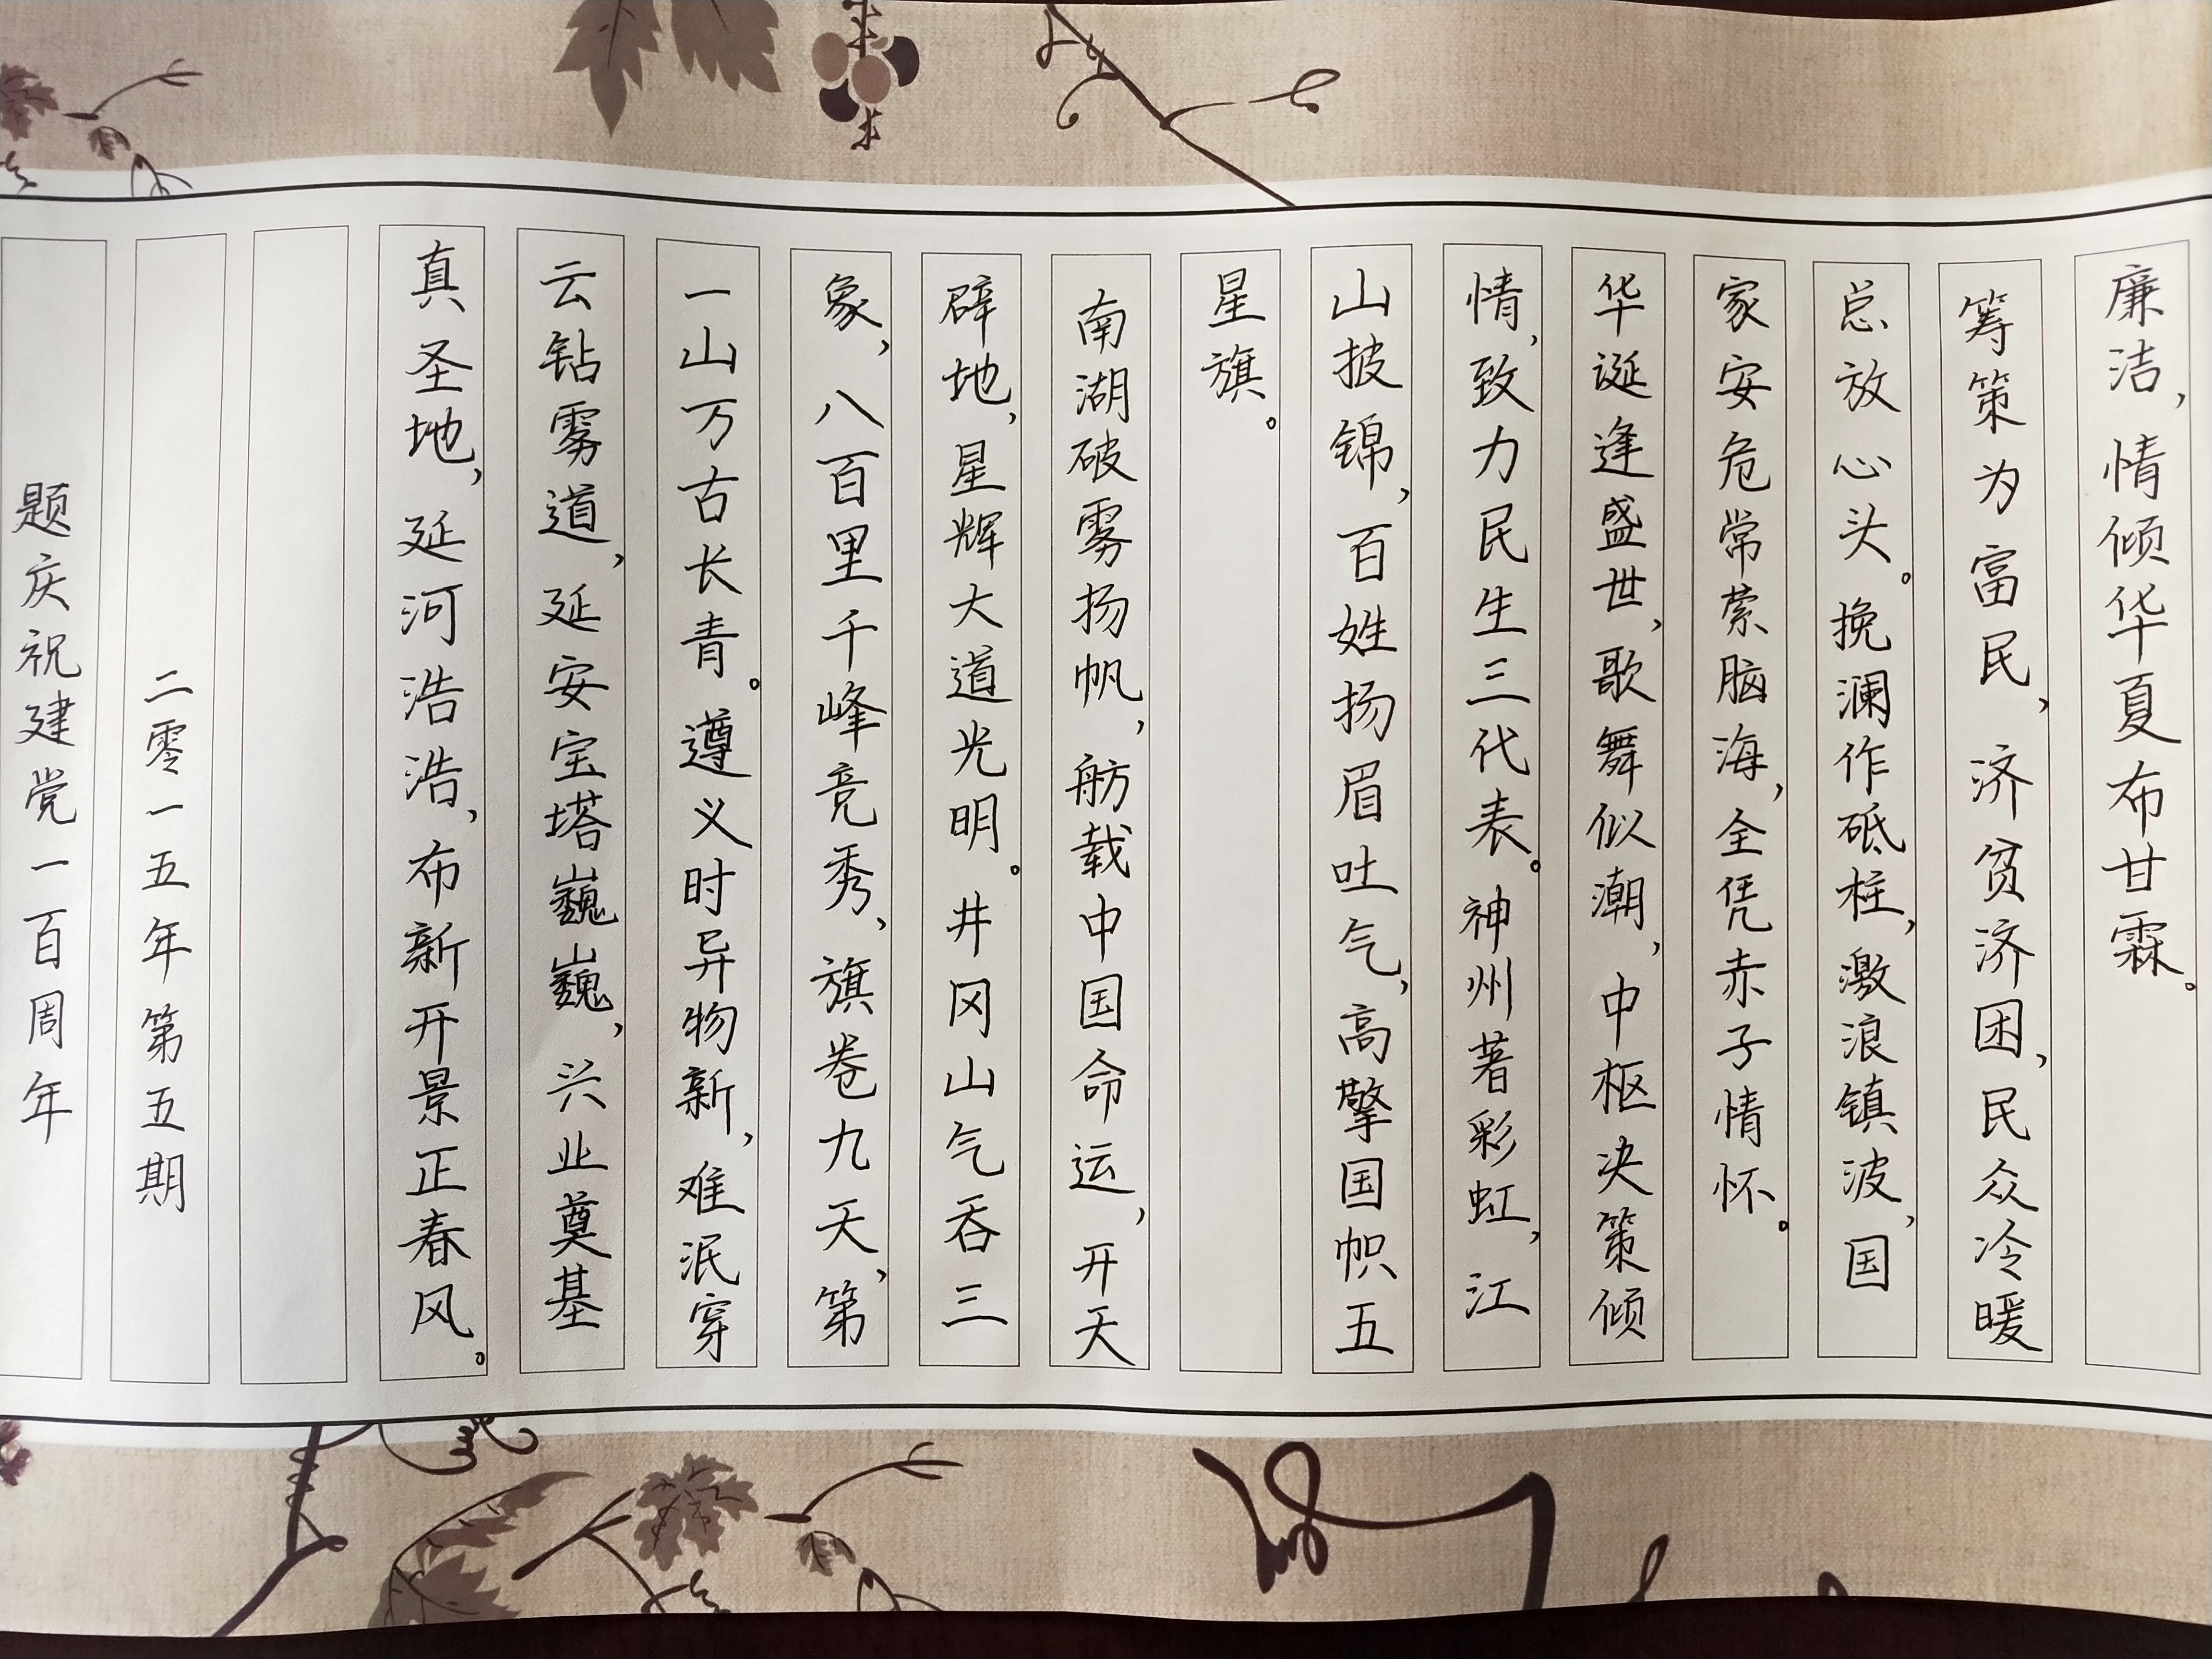 廉洁，情倾华夏布甘霖。
筹策为富民，济贫济困，民众冷暖
总放心头。挽澜作砥柱，激浪镇波，国
家安危常萦脑海，全凭赤子情怀。
华诞逢盛世，歌舞似潮，中枢决策倾
情，致力民生三代表。神州著彩虹，江
山披锦，百姓扬眉吐气，高擎国帜五
星旗。
南湖破雾扬帆，舫载中国命运，开天
辟地，星辉大道光明。井冈山气吞三
象，八百里千峰竞秀，旗卷九天，第
一山万古长青。遵义时异物新，难泯穿
云钻雾道，延安宝塔巍巍，兴业奠基
真圣地，延河浩浩，布新开景正春风。
二零一五年第五期
题庆祝建党一百周年